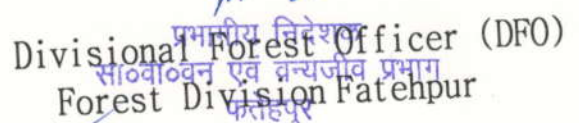 प्रभागीय निदेशक
Divisional Forest Officer (DFO)
सा०वा०वन एवं वन्यजीव प्रभाग
Forest Division Fatehpur
फतेहपुर